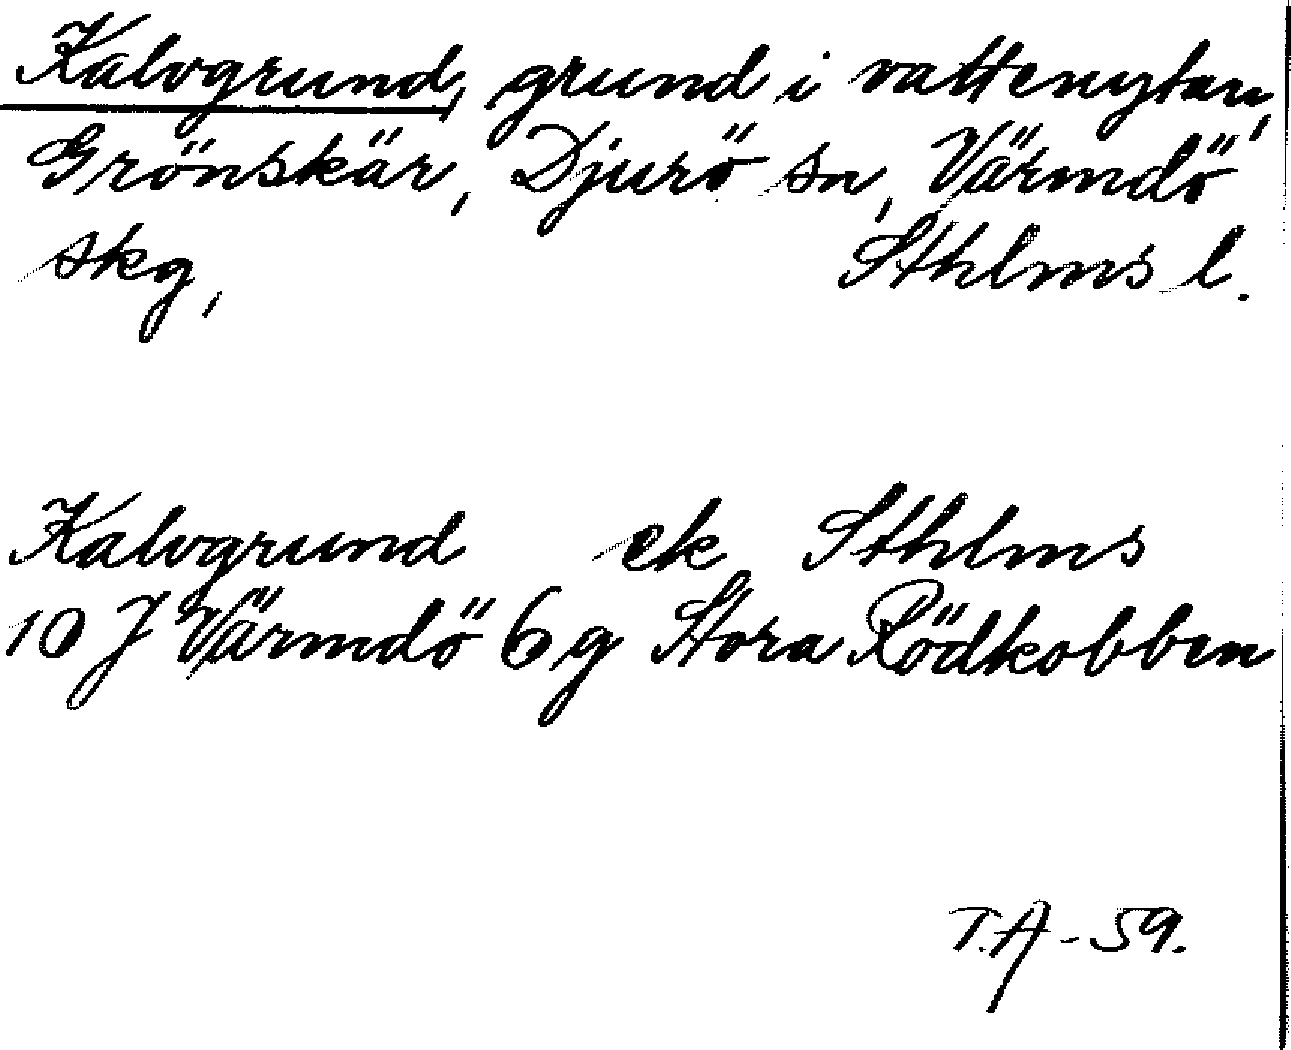 Kalvgrund, grund i vattenytan,
Grönskär, Djurö sn, Värmdö
skg, Sthlms l.
Kalvgrund ek Sthlms
10 J Värmdö 6 g Stora Rödkobben
T.A-59.